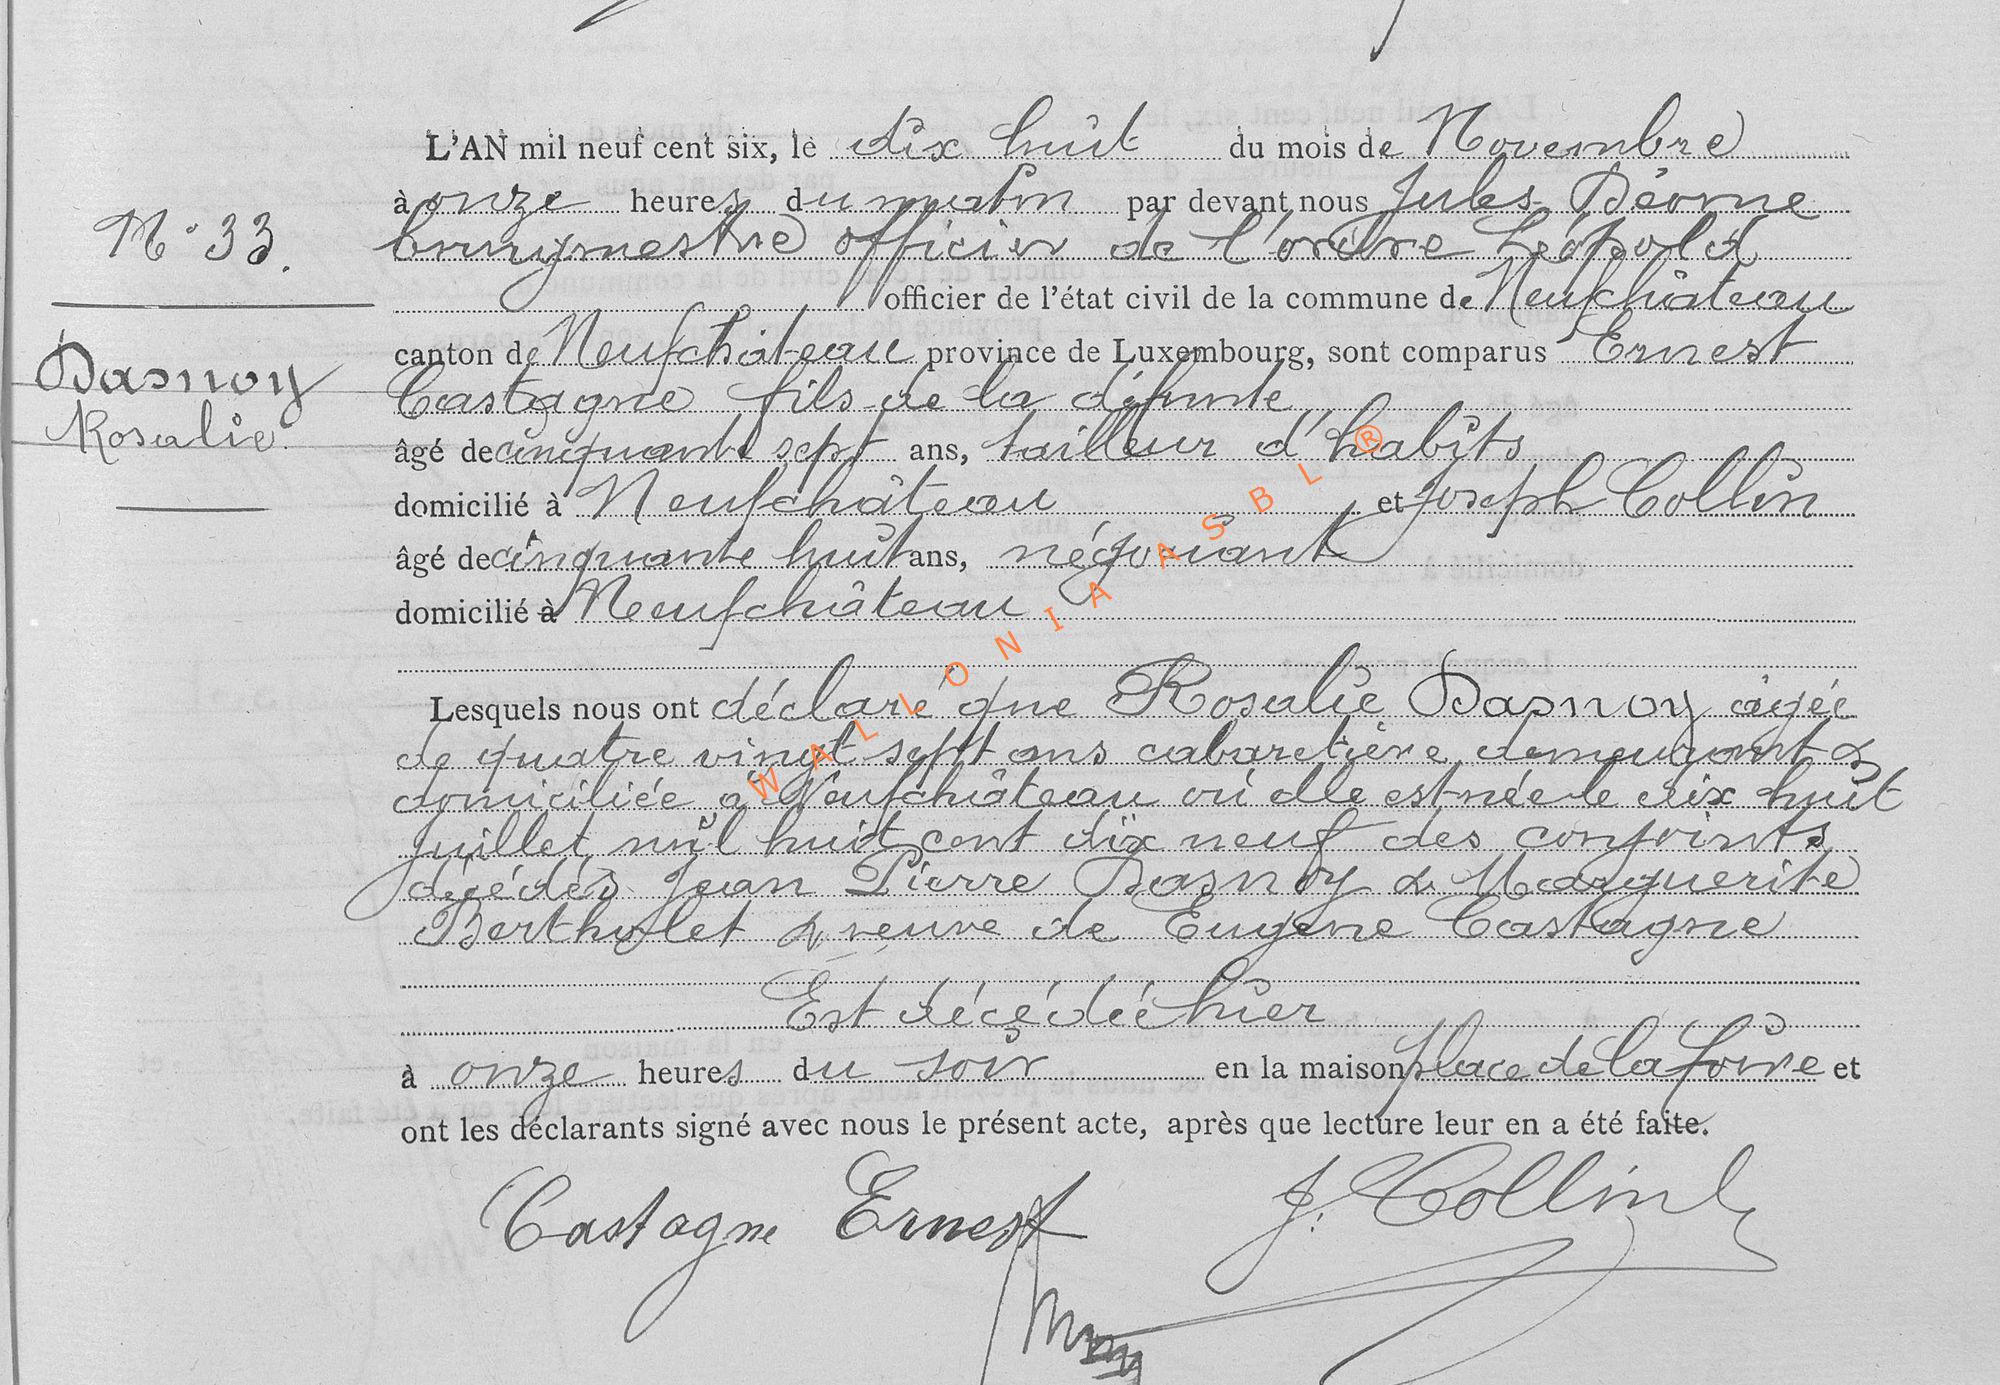 L'AN mil neuf cent six, le dix huit du mois de Novembre
à onze heures du matin par devant nous Jules
N° 33. bourgmestre officier de l'ordre Léopold
officier de l'état civil de la commune de Neufchâteau
Dasnoy
Rosalie.
canton de Neufchâteau province de Luxembourg, sont comparus Ernest
Castagne fils de la défunte
âgé de cinquante sept ans, tailleur d'habits
domicilié à Neufchâteau et Joseph Collin
âgé de cinquante huit ans, négociant
domicilié à Neufchâteau
Lesquels nous ont déclaré que Rosalie Dasnoy âgée
de quatre vingt sept ans cabaretière, demeurant &
domiciliée à Neufchâteau où elle est née le dix huit
juillet mil huit cent dix neuf des conjoints
décédés Jean Pierre Dasnoy & Marguerite
Bertholet & veuve de Eugène Castagne
Est décédée hier
à onze heures du soir en la maison place de la foire et
ont les déclarants signé avec nous le présent acte, après que lecture leur en a été faite.
Castagne Ernest J. Collin
WALLONIA ASBL ®